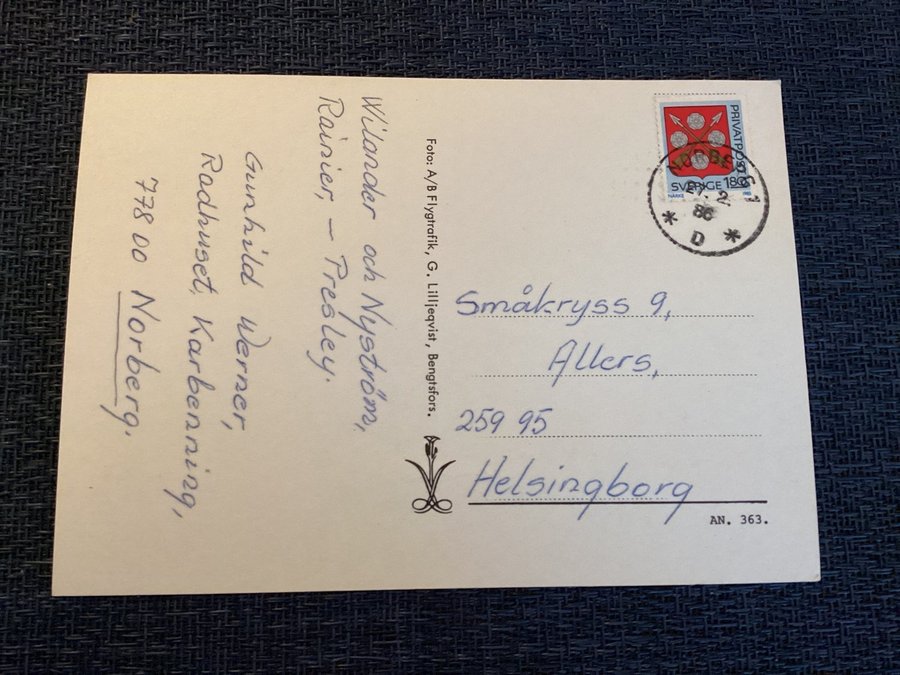 Wilander och Nyström,
Rainier, – Presley.
Gunhild Werner,
Radhuset, Karbenning,
778 00 Norberg.
Foto: A/B Flygtrafik, G. Lilljeqvist, Bengtsfors.
PRIVATPOST
SVERIGE 180
NÄRKE
NORBERG 1
86
* D *
Småkryss 9,
Allers,
259 95
Helsingborg
AN. 363.